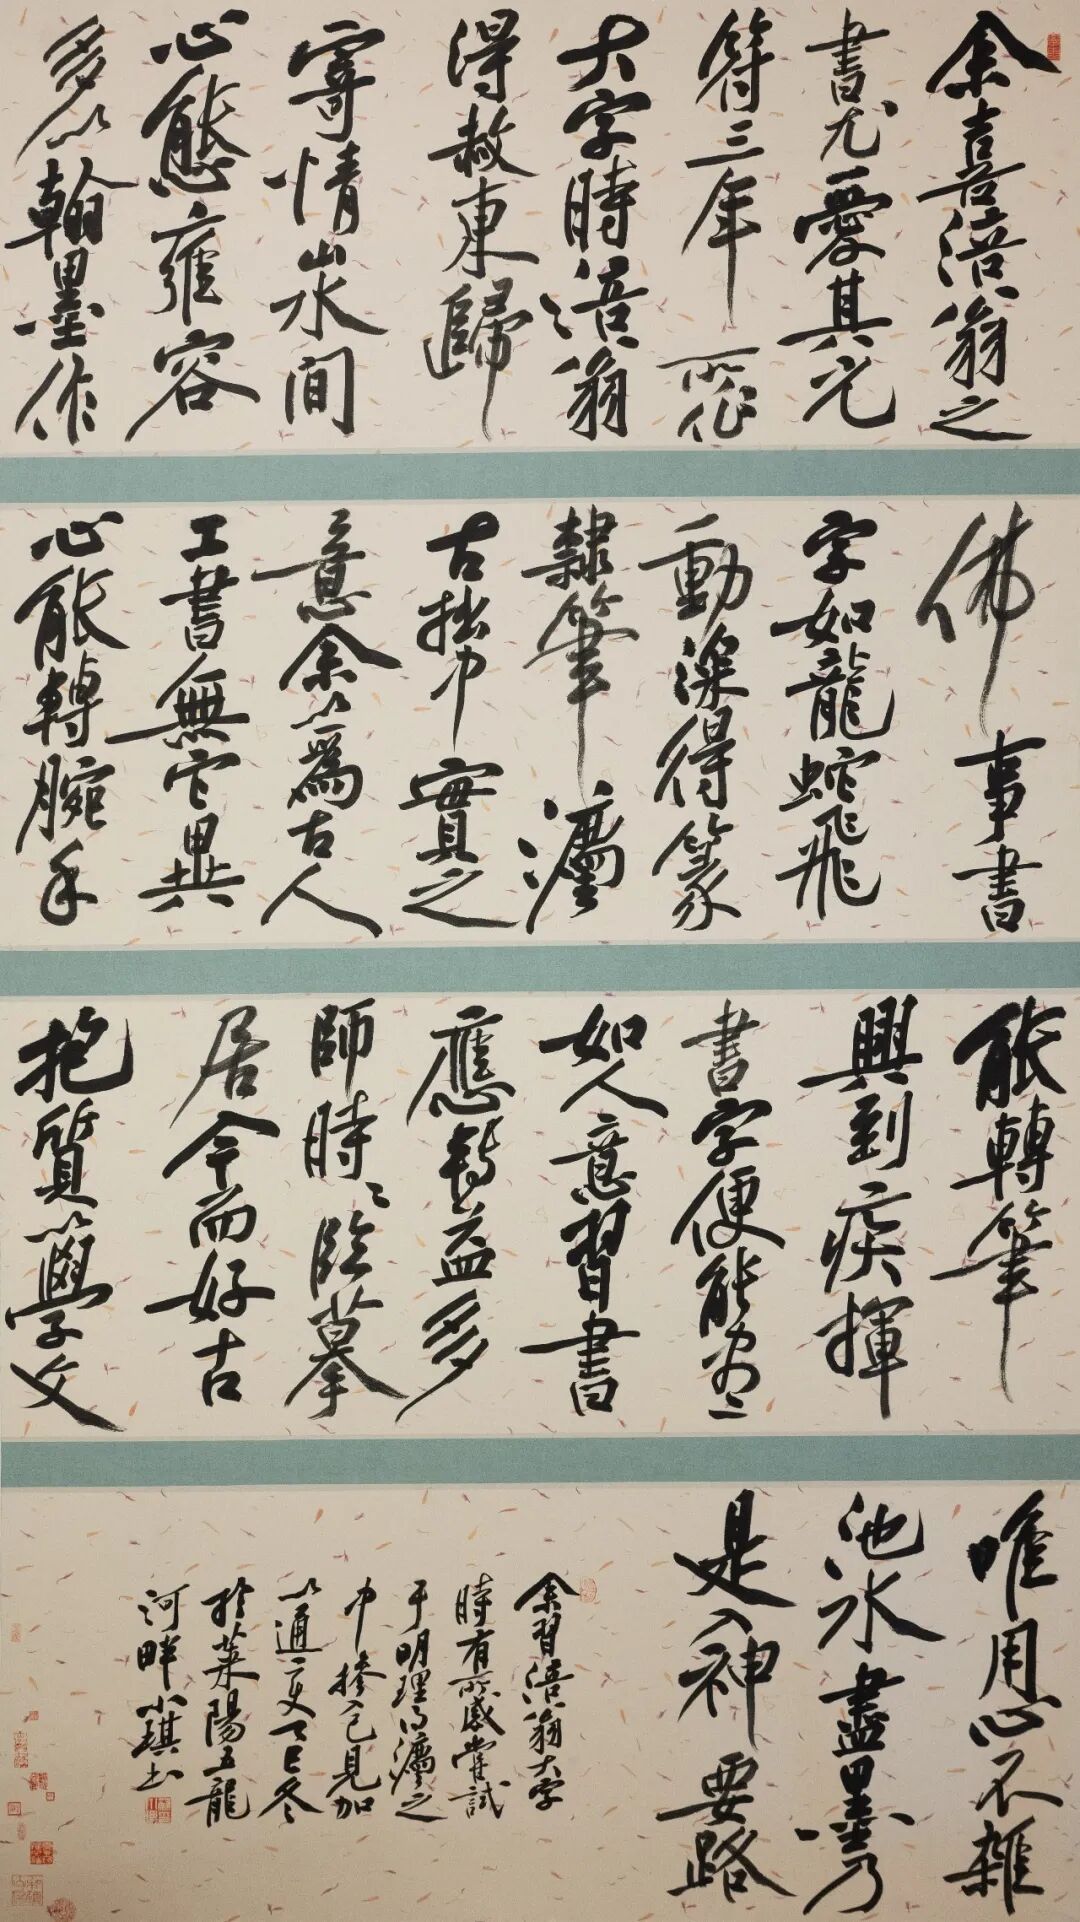 余喜涪翁之
書尤愛其元
符三年所作
大字時涪翁
得赦東歸
寄情山水間
心態雍容
多以翰墨作
佛事書
字如龍蛇飛
動深得篆
隸筆灋
古拙中實之
意余以為古人
工書無它異
心能轉腕手
能轉筆
興到疾揮
書字便能盡
如人意習書
應轉益多
師時時臨摹
居今而好古
抱質以學文
唯用心不雜
池水盡墨乃
是入神要路
余習涪翁大字
時有所感嘗試
于明理得灋之
中摻入己見加
以通變乙巳冬
於萊陽五龍
河畔小琪書